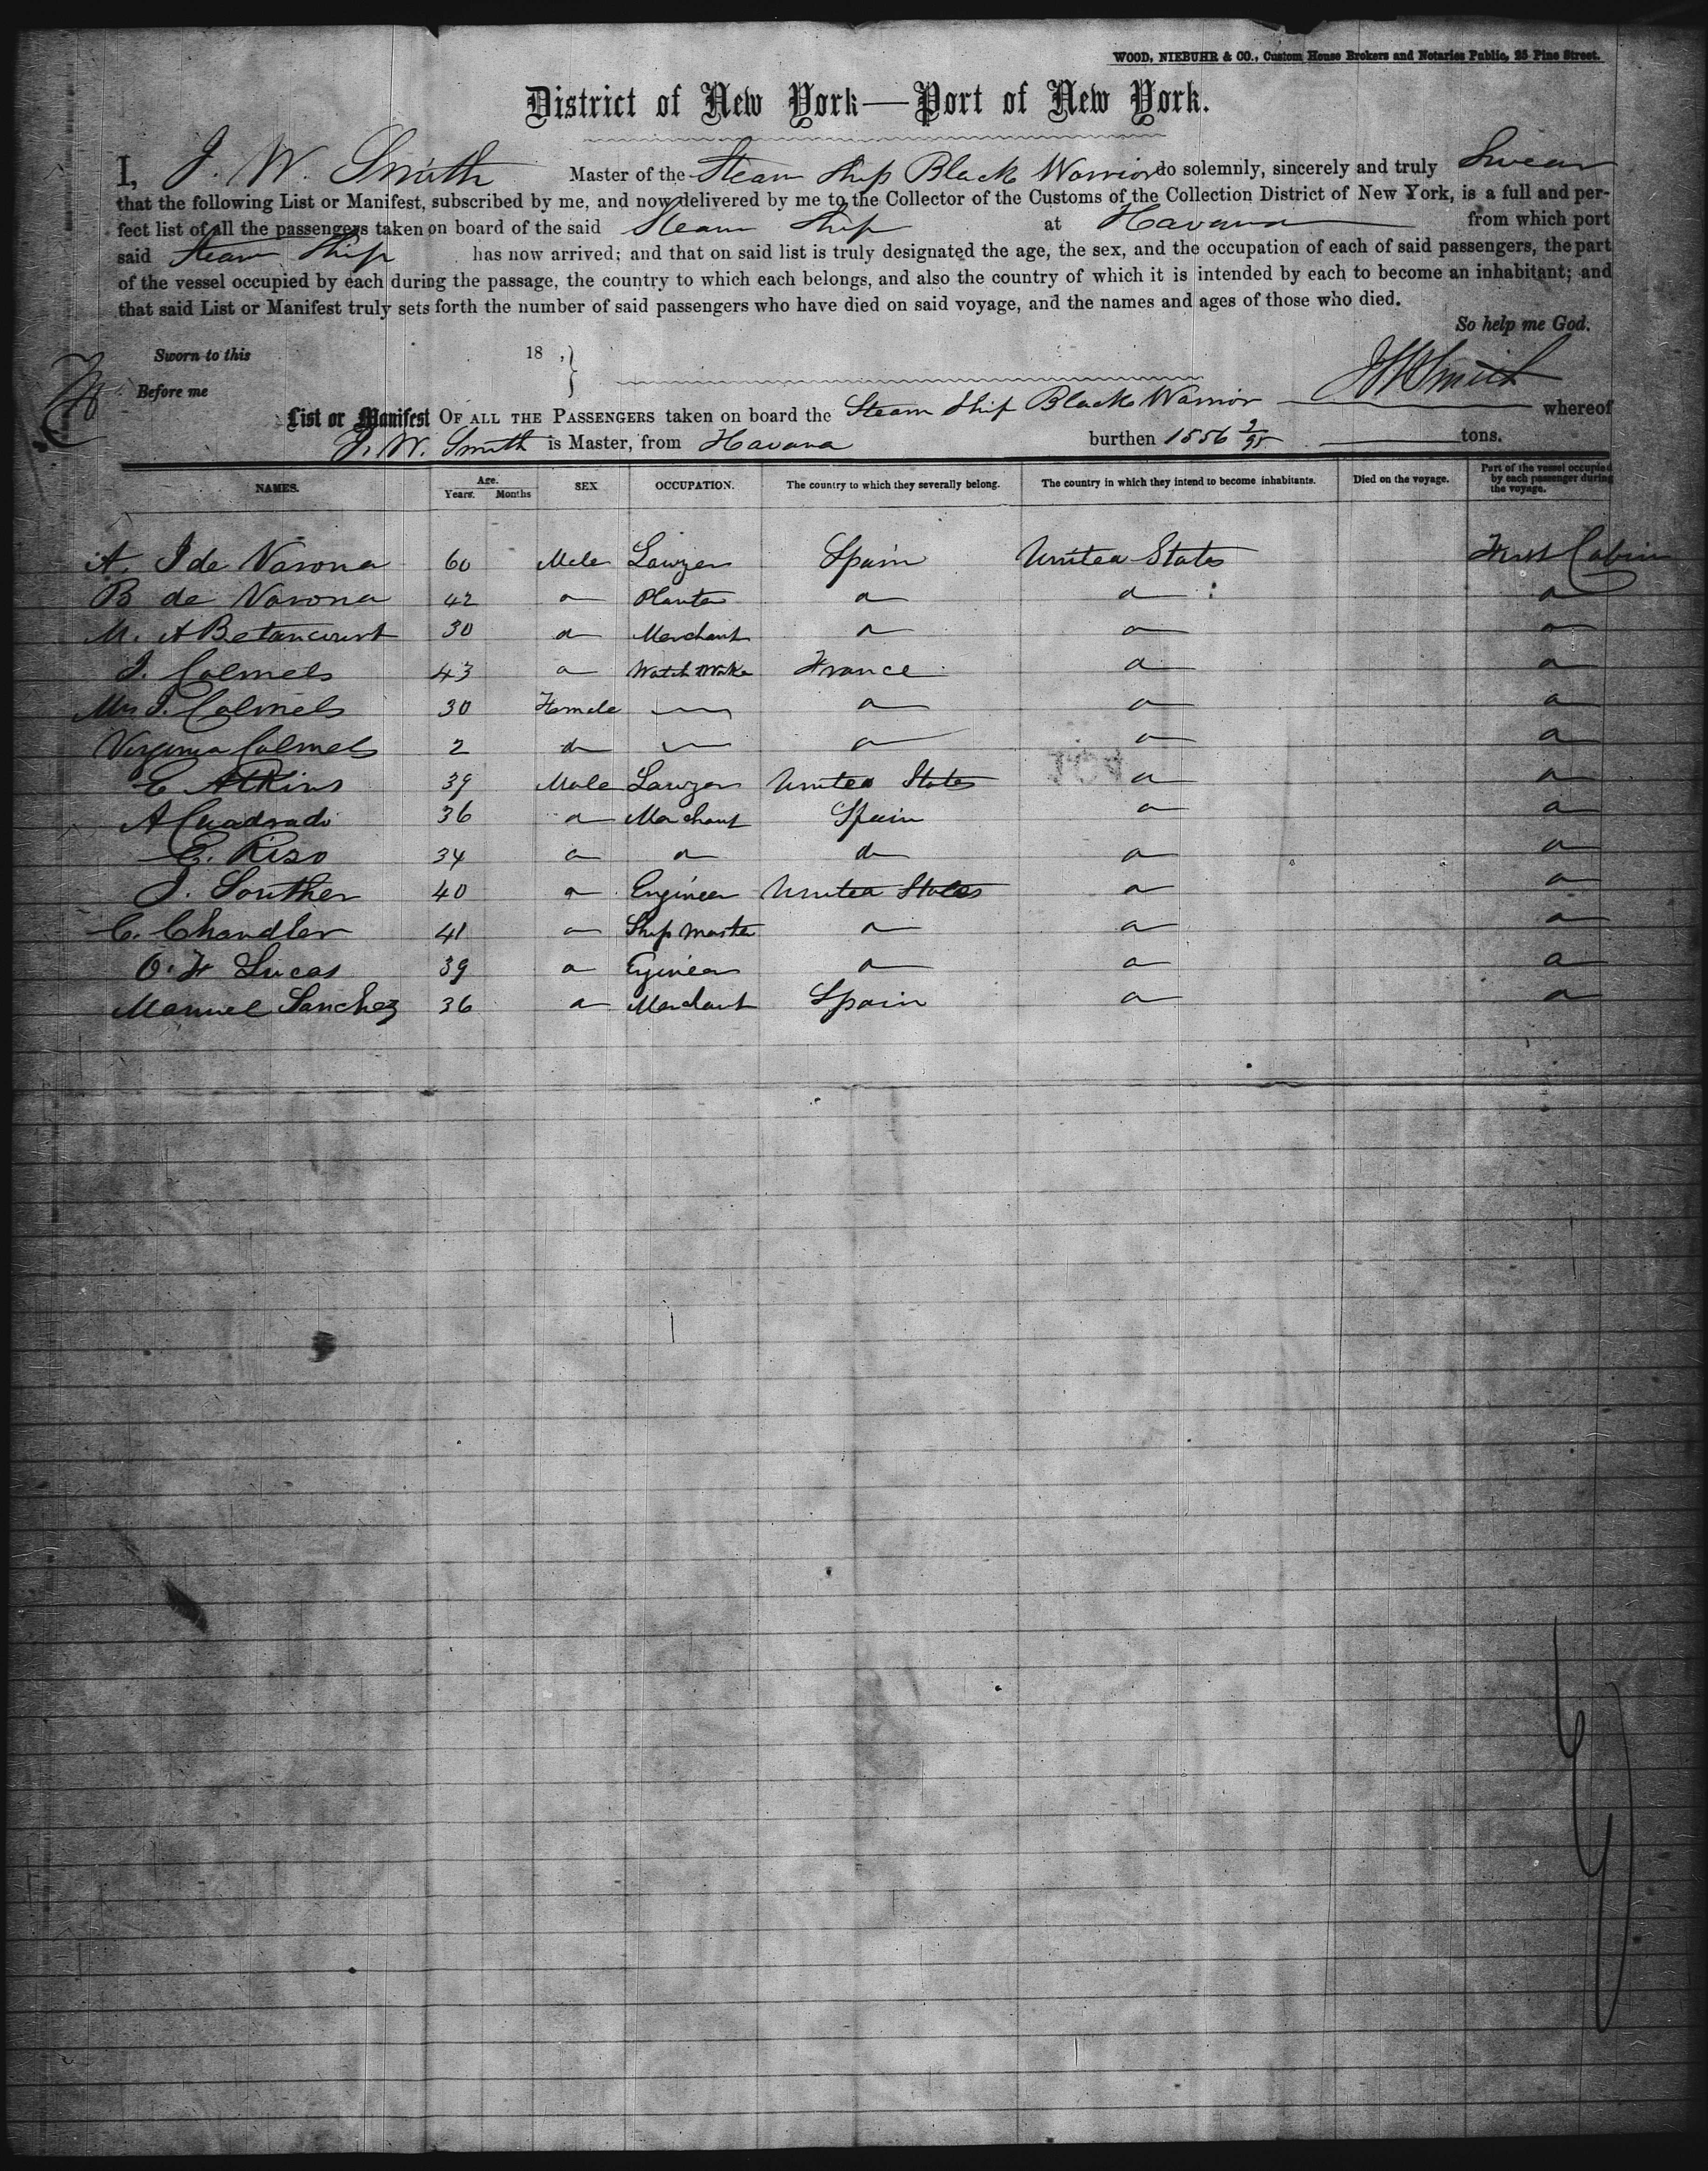 WOOD, NIEBUHR & CO., Custom House Brokers and Notaries Public, 25 Pine Street.
District of New York—Port of New York.
I, J. W. Smith Master of the Steam Ship Black Warrior do solemnly, sincerely and truly Swear
that the following List or Manifest, subscribed by me, and now delivered by me to the Collector of the Customs of the Collection District of New York, is a full and per-
fect list of all the passengers taken on board of the said Steam Ship at Havana from which port
said Steam Ship has now arrived; and that on said list is truly designated the age, the sex, and the occupation of each of said passengers, the part
of the vessel occupied by each during the passage, the country to which each belongs, and also the country of which it is intended by each to become an inhabitant; and
that said List or Manifest truly sets forth the number of said passengers who have died on said voyage, and the names and ages of those who died.
So help me God.
Sworn to this 18 ,
Before me
J W Smith
List or Manifest OF ALL THE PASSENGERS taken on board the Steam Ship Black Warrior whereof
J. W. Smith is Master, from Havana burthen 1556 2/95 tons.
NAMES. Age. Years. Months SEX OCCUPATION. The country to which they severally belong. The country in which they intend to become inhabitants. Died on the voyage. Part of the vessel occupied by each passenger during the voyage.
A. J de Varona 60 Male Lawyer Spain United States First Cabin
B de Varona 42 do Planter do do do
M. A Betancourt 30 do Merchant do do do
J. Calmels 43 do Watch Make France do do
Mrs J. Calmels 30 Female — do do do
Virginia Calmels 2 do — do do do
E Atkins 39 Male Lawyer United States do do
A Cuadrado 36 do Merchant Spain do do
E. Riso 34 do do do do do
J. Souther 40 do Engineer United States do do
C. Chandler 41 do Ship Master do do do
O. F Lucas 39 do Egineer do do do
Manuel Sanchez 36 do Merchant Spain do do